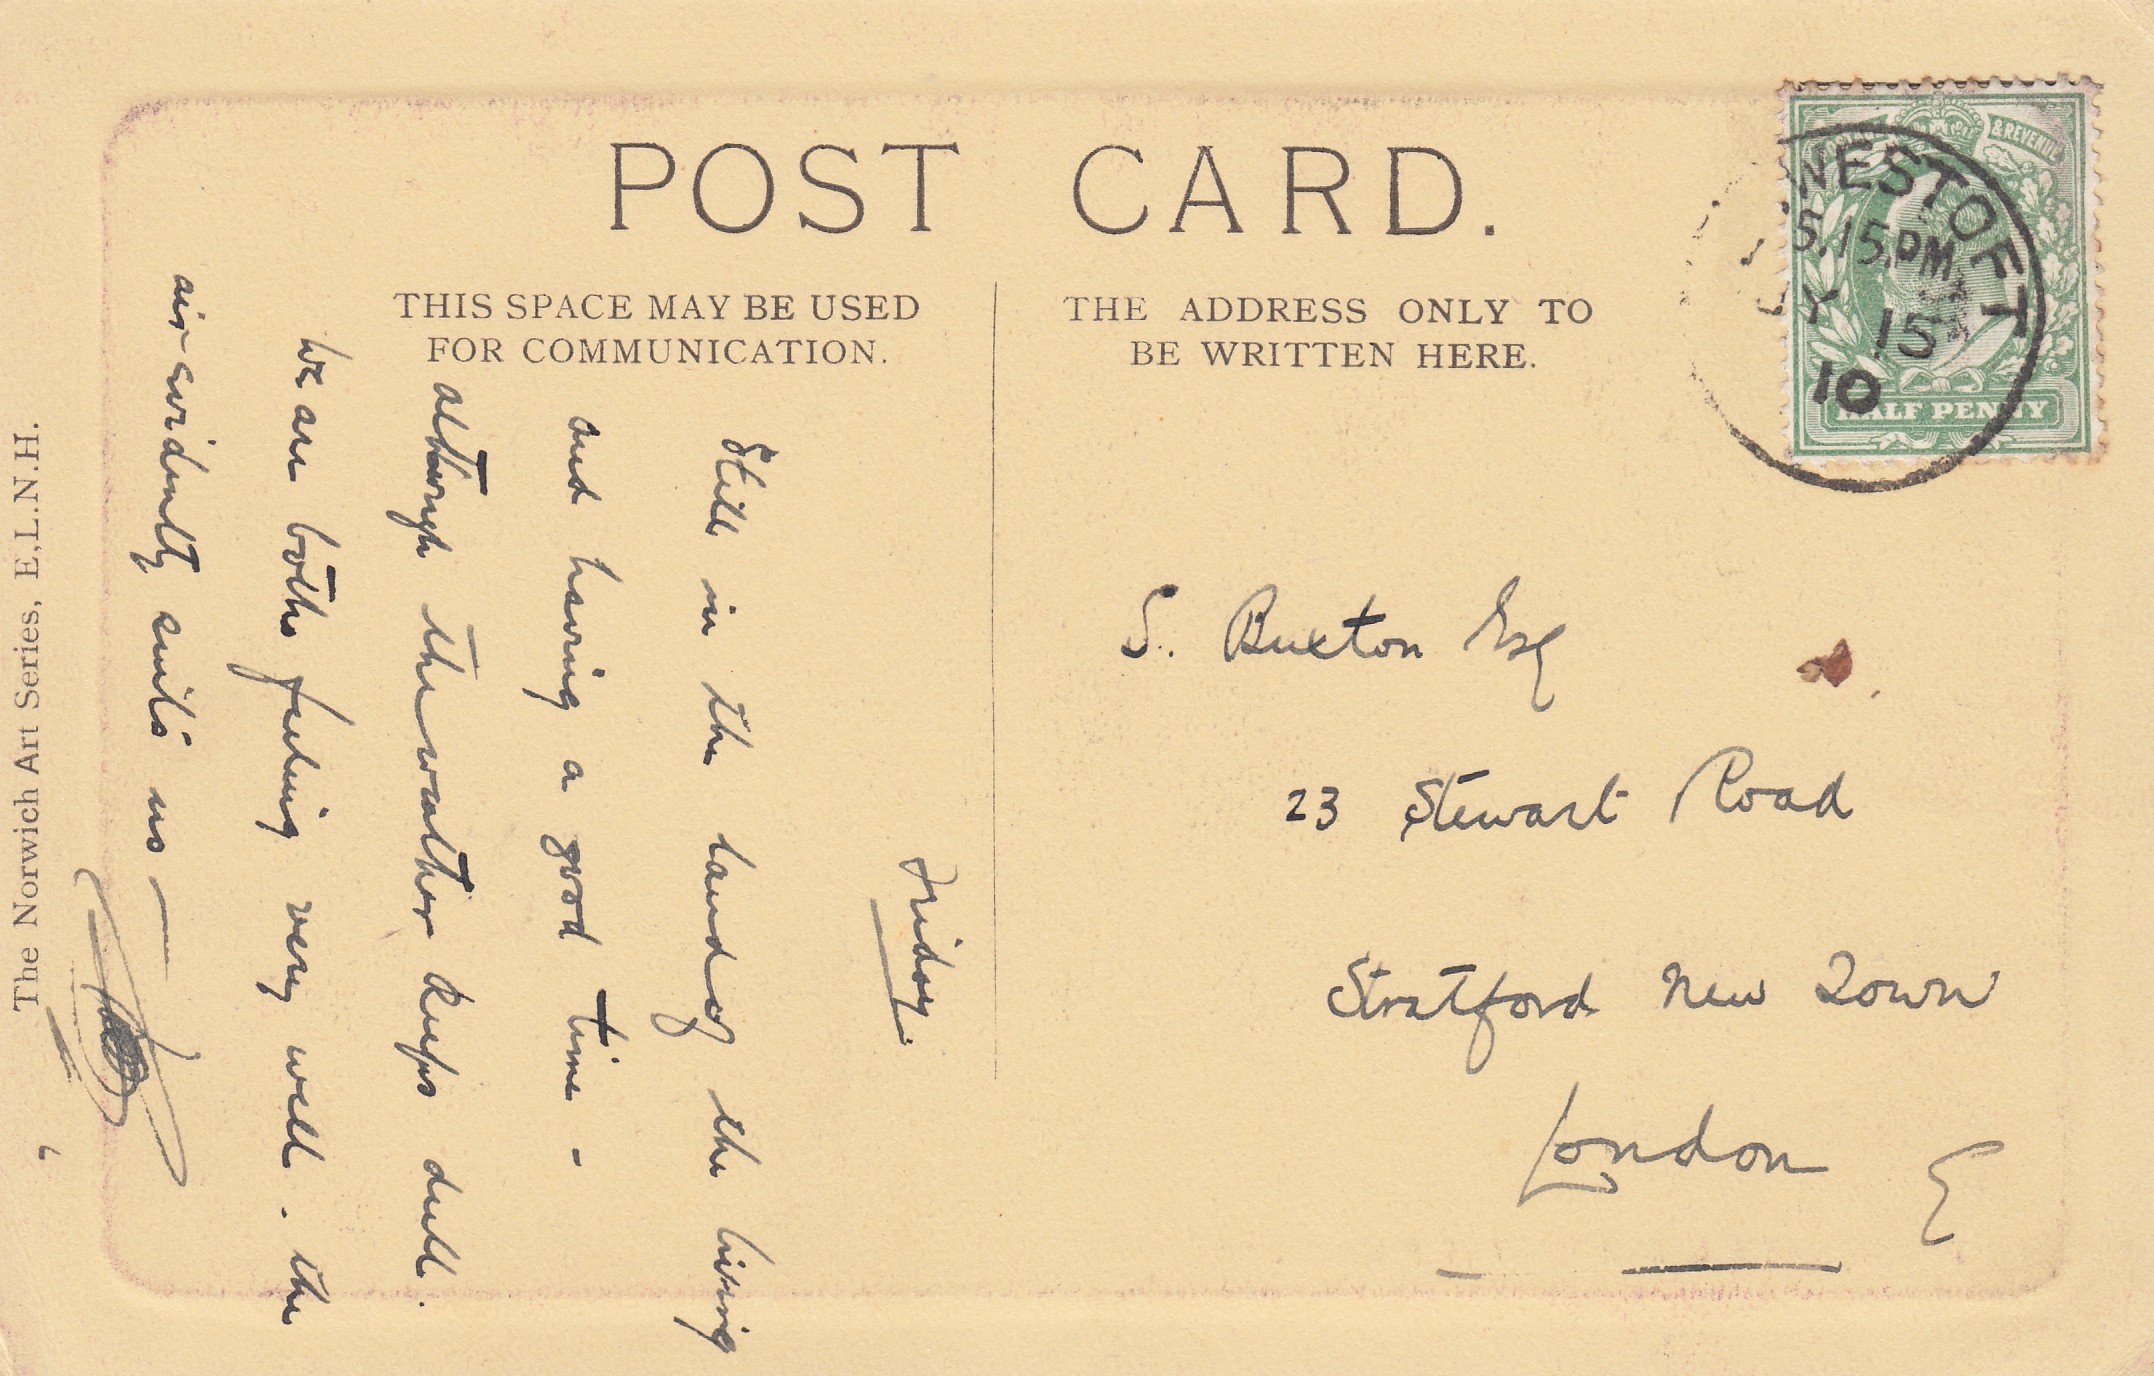 POST CARD.
THIS SPACE MAY BE USED
FOR COMMUNICATION.
THE ADDRESS ONLY TO
BE WRITTEN HERE.
& REVENUE
WESTOFT
5.15.PM
Y 15
10
HALF PENNY
Friday.
Still in the land of the living
and having a good time -
although the weather keeps dull.
We are both feeling very well. the
air evidently suits us —
S. Buxton Esq
23 Stewart Road
Stratford New Town
London E
The Norwich Art Series, E.L.N.H.